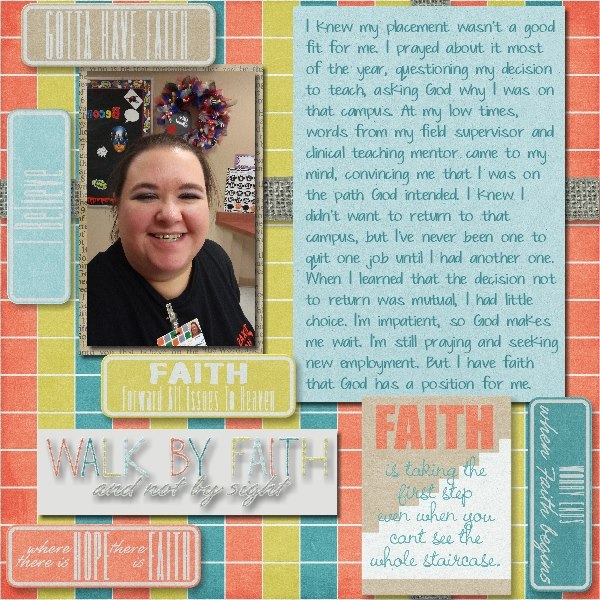 GOTTA HAVE FAITH
I knew my placement wasn't a good
fit for me. I prayed about it most
of the year, questioning my decision
to teach, asking God why I was on
that campus. At my low times,
words from my field supervisor and
clinical teaching mentor came to my
mind, convincing me that I was on
the path God intended. I knew I
didn't want to return to that
campus, but I've never been one to
quit one job until I had another one.
When I learned that the decision not
to return was mutual, I had little
choice. I'm impatient, so God makes
me wait. I'm still praying and seeking
new employment. But I have faith
that God has a position for me.
I Believe
FAITH
Forward All Issues To Heaven
WALK BY FAITH
and not by sight
FAITH
is taking the
first step
even when you
can't see the
whole staircase.
WORRY ENDS
when Faith begins
where there is HOPE there is FAITH